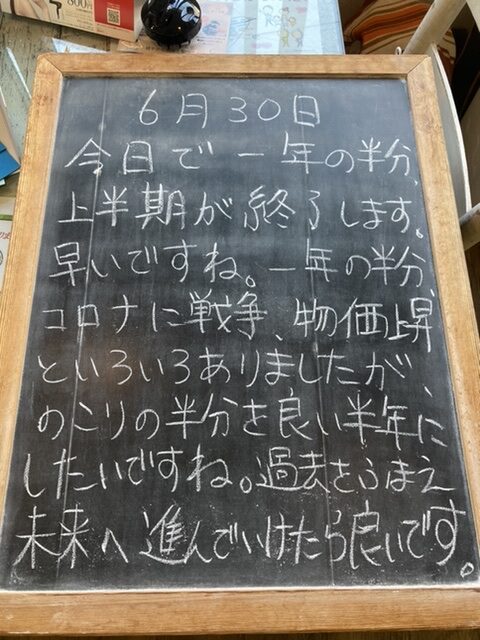 6月30日
今日で一年の半分、
上半期が終了します。
早いですね。一年の半分、
コロナに戦争、物価上昇
といろいろありましたが、
のこりの半分を良い半年に
したいですね。過去をふまえ
未来へ進んでいけたら良いです。